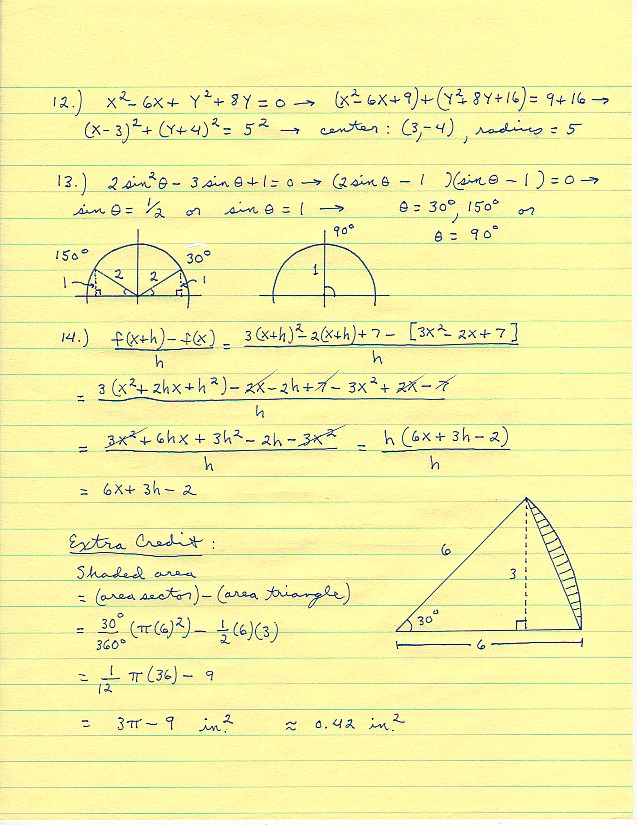 12.) x² - 6x + y² + 8y = 0 → (x² - 6x + 9) + (y² + 8y + 16) = 9 + 16 →
(x - 3)² + (y + 4)² = 5² → center : (3, -4) , radius = 5
13.) 2 sin²θ - 3 sin θ + 1 = 0 → (2 sin θ - 1 )(sin θ - 1 ) = 0 →
sin θ = 1/2 or sin θ = 1 → θ = 30°, 150° or
θ = 90°
150° 30° 90°
1 2 2 1 1
14.) f(x+h) - f(x) / h = 3(x+h)² - 2(x+h) + 7 - [3x² - 2x + 7] / h
= 3(x² + 2hx + h²) - 2x - 2h + 7 - 3x² + 2x - 7 / h
= 3x² + 6hx + 3h² - 2h - 3x² / h = h(6x + 3h - 2) / h
= 6x + 3h - 2
Extra Credit :
Shaded area
= (area sector) - (area triangle)
= 30°/360° (π(6)²) - 1/2 (6)(3)
= 1/12 π(36) - 9
= 3π - 9 in.² ≈ 0.42 in.²
6
3
30°
6